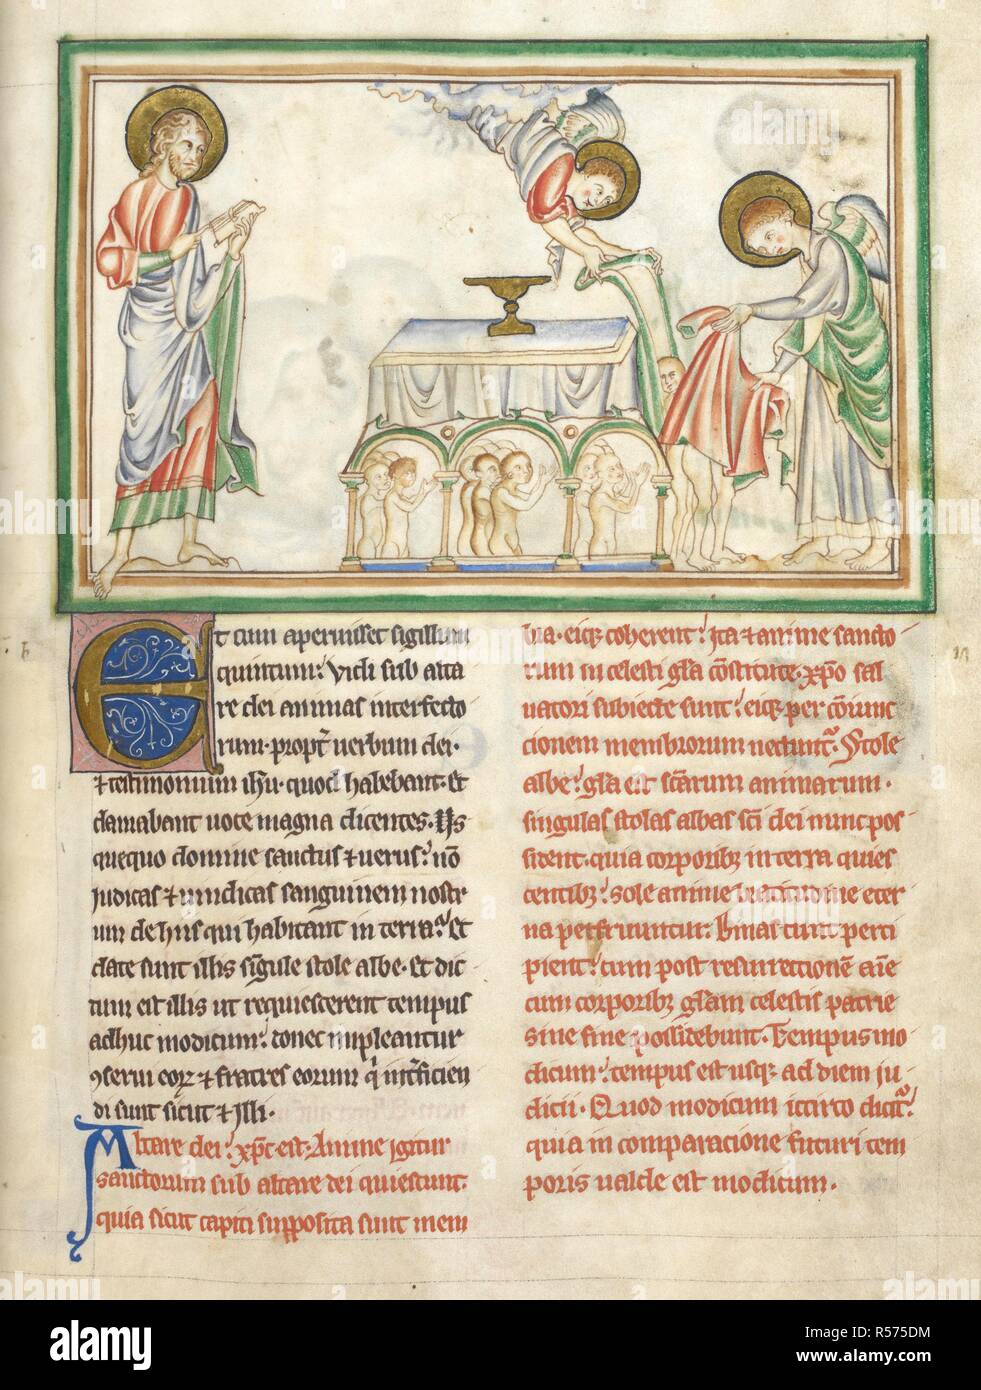 Et cum aperuisset sigillum
quintum: vidi sub alta
re dei animas interfecto
rum propt̉ verbum dei·
⁊ testimonium ih̄u· quod habebant· et
clamabant uoce magna dicentes· Us
quequo domine sanctus ⁊ uerus: nō
iudicas ⁊ uindicas sanguinem nostr
um de hiis qui habitant in terra? Et
date sunt illis sīgule stole albe· Et dic
tum est illis ut requiescerent tempus
adhuc modicum: donec impleantur
ꝯserui eoꝝ ⁊ fratres eorum q̇ int̉ficien
di sunt sicut ⁊ illi·
Altare dei: xp̄c est· Anime igitur
sanctorum sub altare dei quiescunt
quia sicut capiti supposita sunt mem
bra· eiqꝫ coherent: Ita ⁊ anime sancto
rum in celesti gl̄a cōstitute· xp̄o sal
uatori subiecte sunt: eiqꝫ per cōiunc
cionem membrorum nectunt̉· Stole
albe: gl̄a est sc̄arum animarum·
singulas stolas albas sc̄i dei nunc pos
sident· quia corporibꝫ in terra quies
centibꝫ: sole anime beatitudine eter
na perfruuntur: Binas tunc perci
pient: cum post resurrectionē aīe
cum corporibꝫ gl̄am celestis patrie
sine fine possidebunt· Tempus mo
dicum: tempus est usqꝫ ad diem iu
dicii· Quod modicum iccirco dicit̉:
quia in comparacione futuri tem
poris ualde est modicum·
alamy
Image ID: R575DM
www.alamy.com